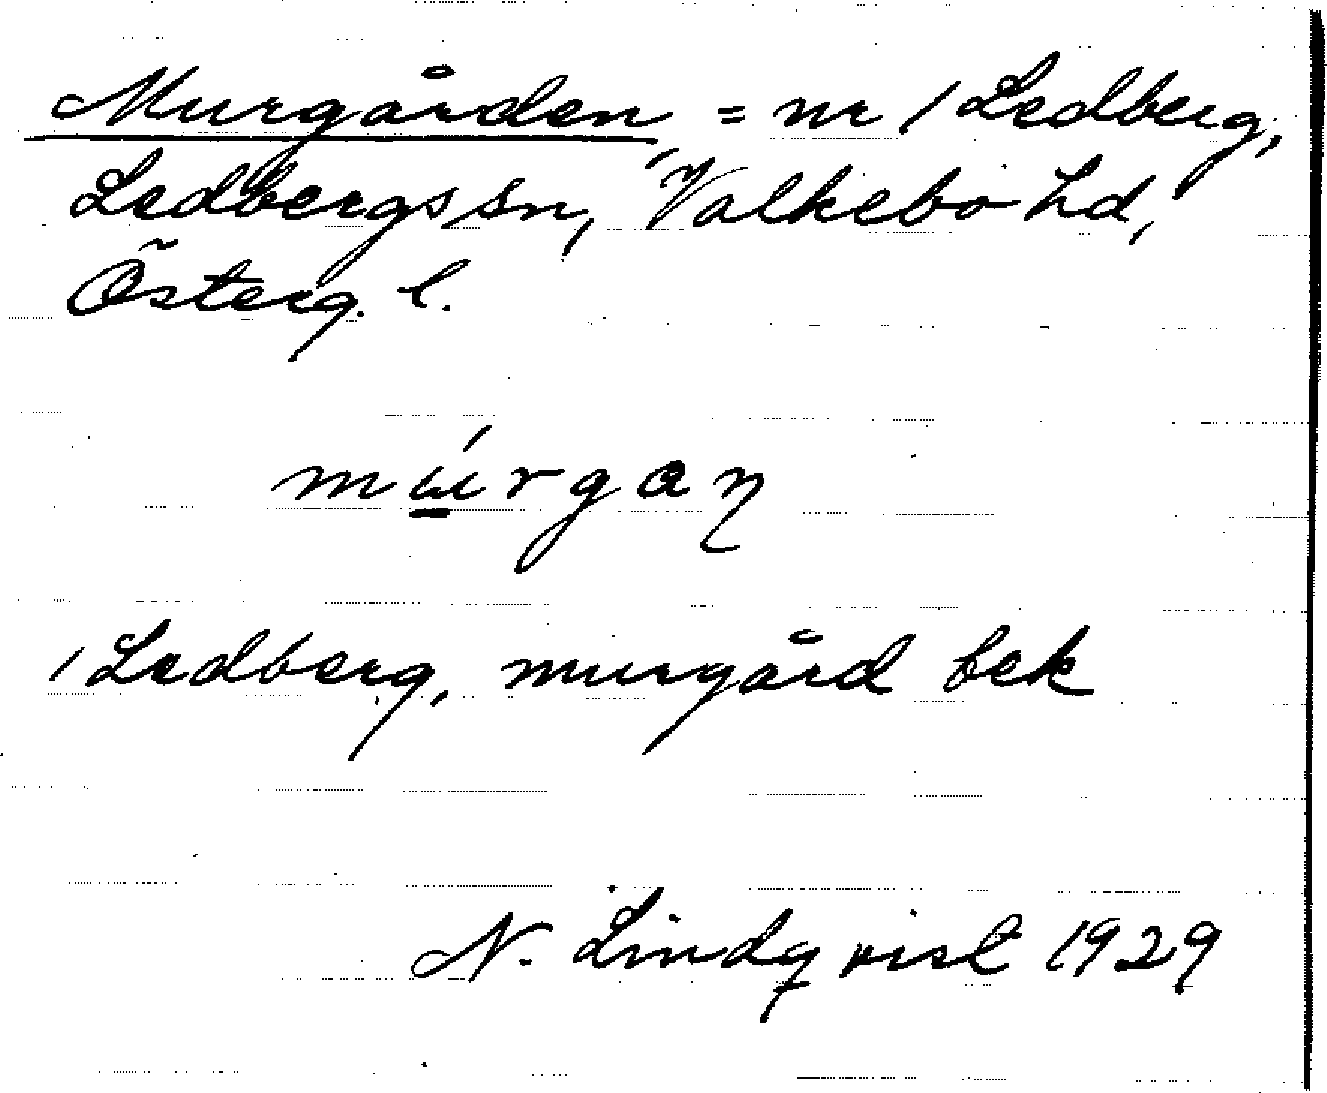 Murgården, = nr 1 Ledberg,
Ledbergs sn, Valkebo hd,
Österg. l.
mú̲rgaɳ
1 Ledberg, murgård bek
N. Lindqvist 1929